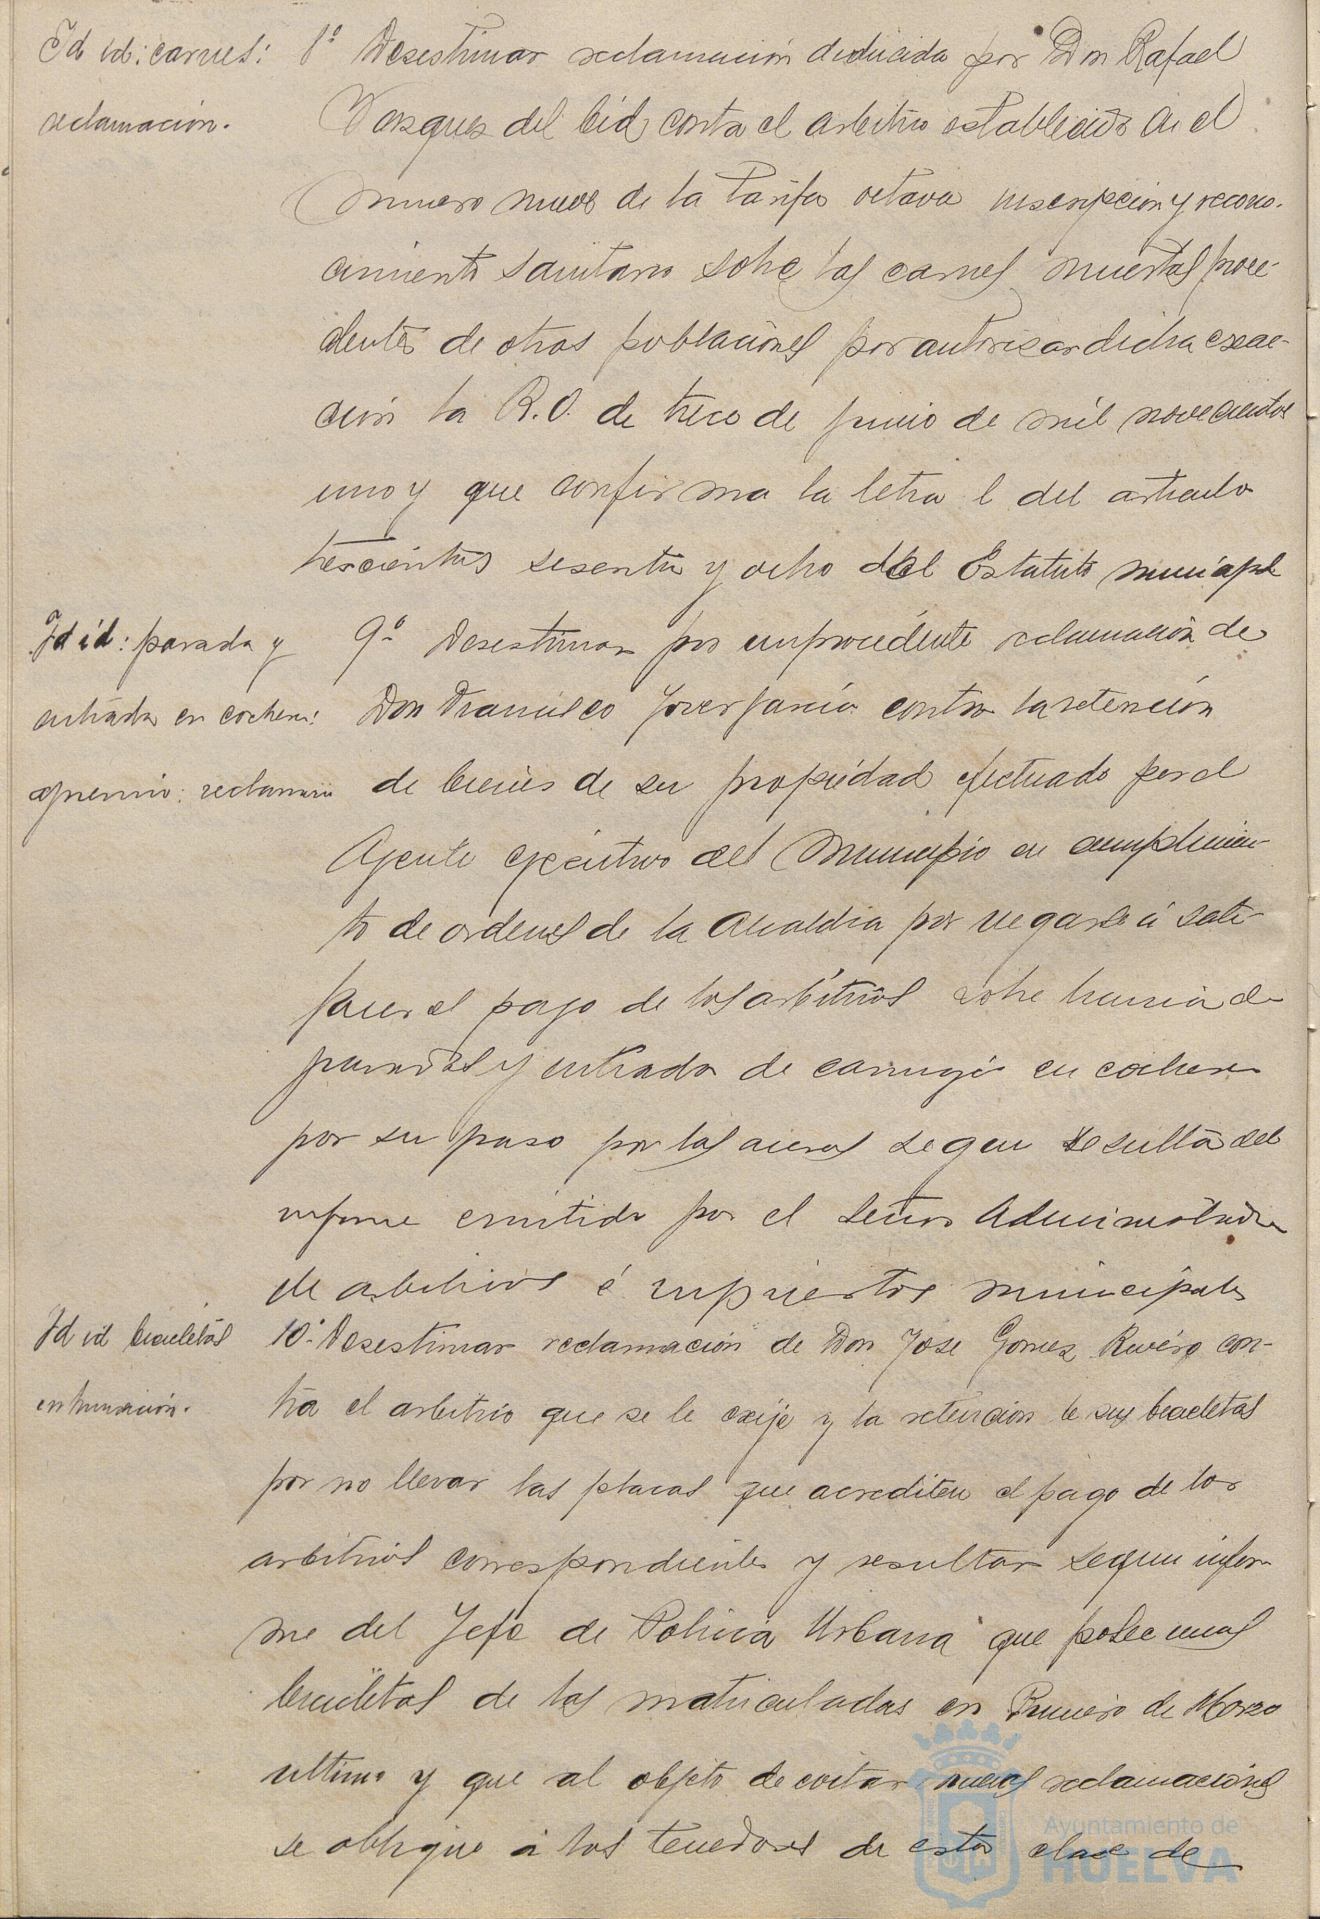 Id id: carnes:
reclamación.
8º Desestimar reclamación deducida por Don Rafael
Vazquez del Cid contra el arbitrio establecido en el
número nueve de la Tarifa octava inscripcion y recono-
cimiento sanitario sobre las carnes muertas proce-
dentes de otras poblaciones por autorizar dicha exac-
ción la R.O. de trece de junio de mil novecientos
uno y que confirma la letra l del articulo
trescientos sesenta y ocho del Estatuto municipal
Id id: parada y
entrada en cochera:
apremio: reclamación
9º Desestimar por improcedente reclamación de
Don Francisco Jover García contra la retención
de bienes de su propiedad efectuado por el
Agente ejecutivo del Municipio en cumplimien-
to de ordenes de la Alcaldia por negarse á satis-
facer el pago de los arbitrios sobre licencia de
paradas y entrada de carruaje en cochera
por su paso por las aceras segun resulta del
informe emitido por el Señor Administrador
de arbitrios é impuestos municipales
Id id bicicletas
10º Desestimar reclamación de Don Jose Gomez Rivero con-
tra el arbitrio que se le exije y la retencion de sus bicicletas
por no llevar las placas que acrediten el pago de los
arbitrios correspondientes y resultar segun infor-
me del Jefe de Policia Urbana que posee unas
bicicletas de las matriculadas en Primero de Marzo
ultimo y que al objeto de evitar nuevas reclamaciones
se obligue á los tenedores de esta clase de
Ayuntamiento de
HUELVA